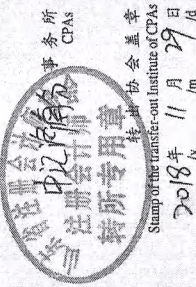 事务所
CPAs
注册会计师
转所专用章
转出协会盖章
Stamp of the transfer-out Institute of CPAs
2018年 11月 29日
y m d